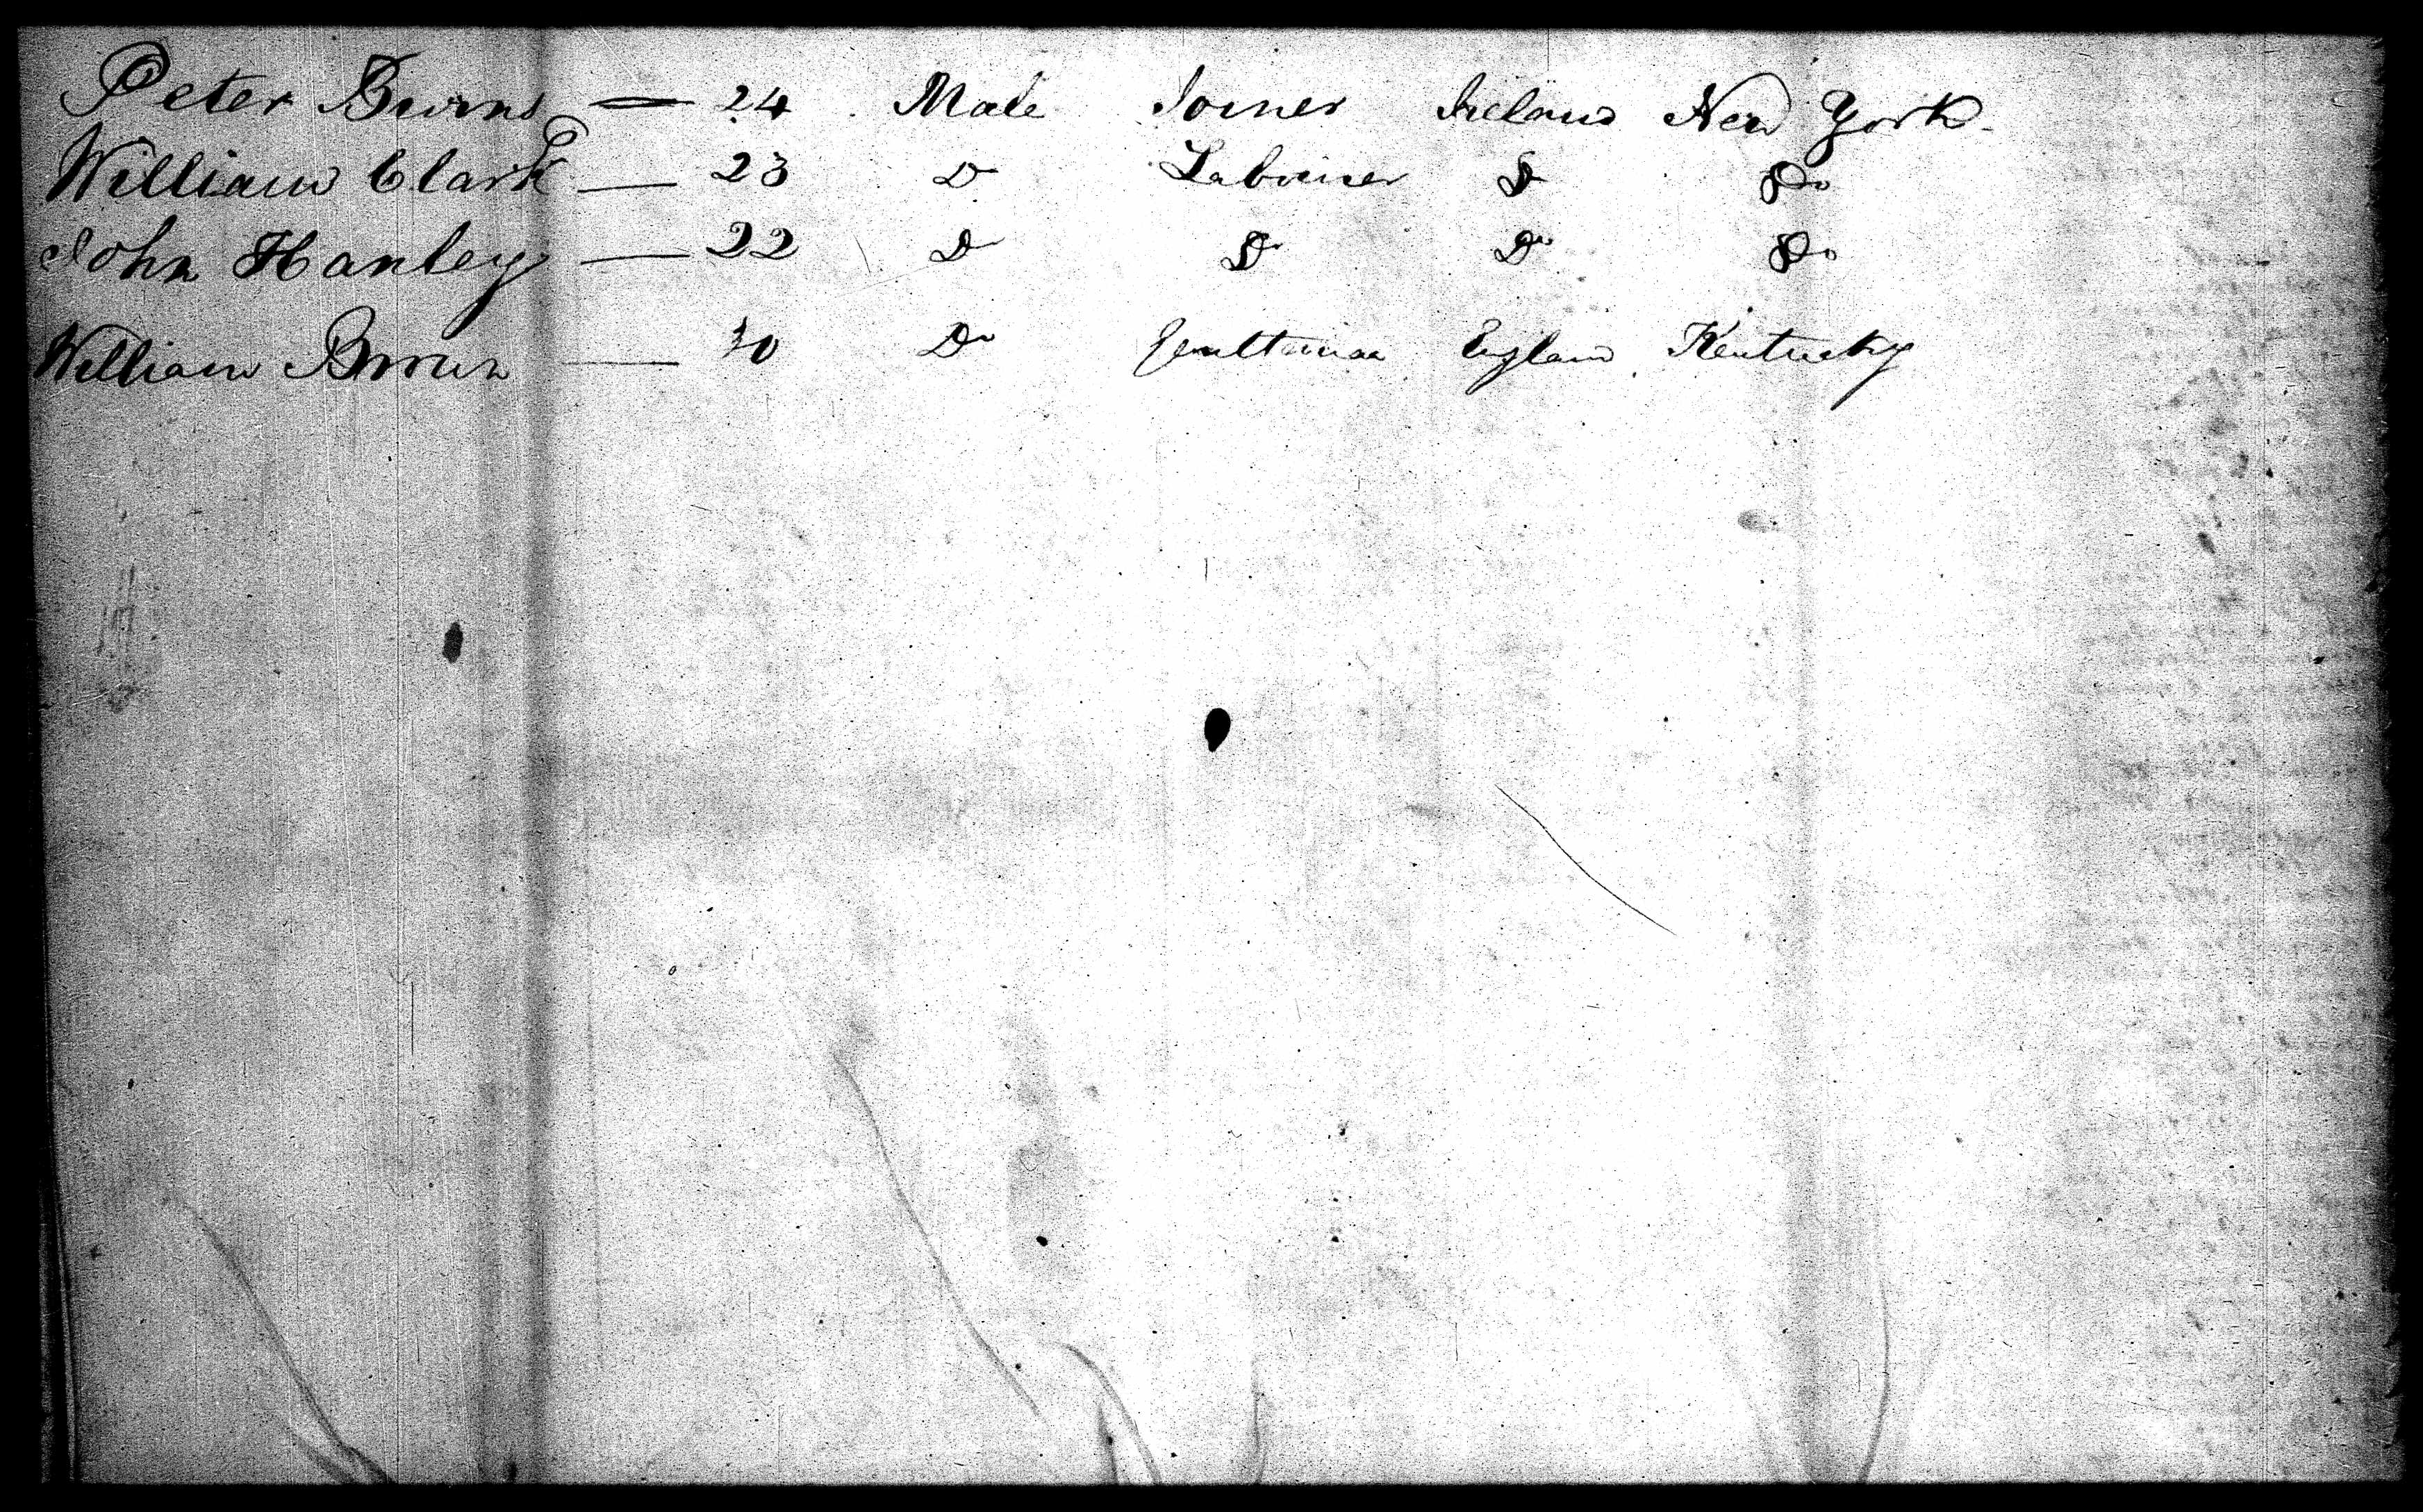 Peter Burns — 24 Male Joiner Ireland New York
William Clark — 23 Do Labourer Do Do
John Hanley — 22 Do Do Do Do
William Brown — 30 Do Gentleman England Kentucky